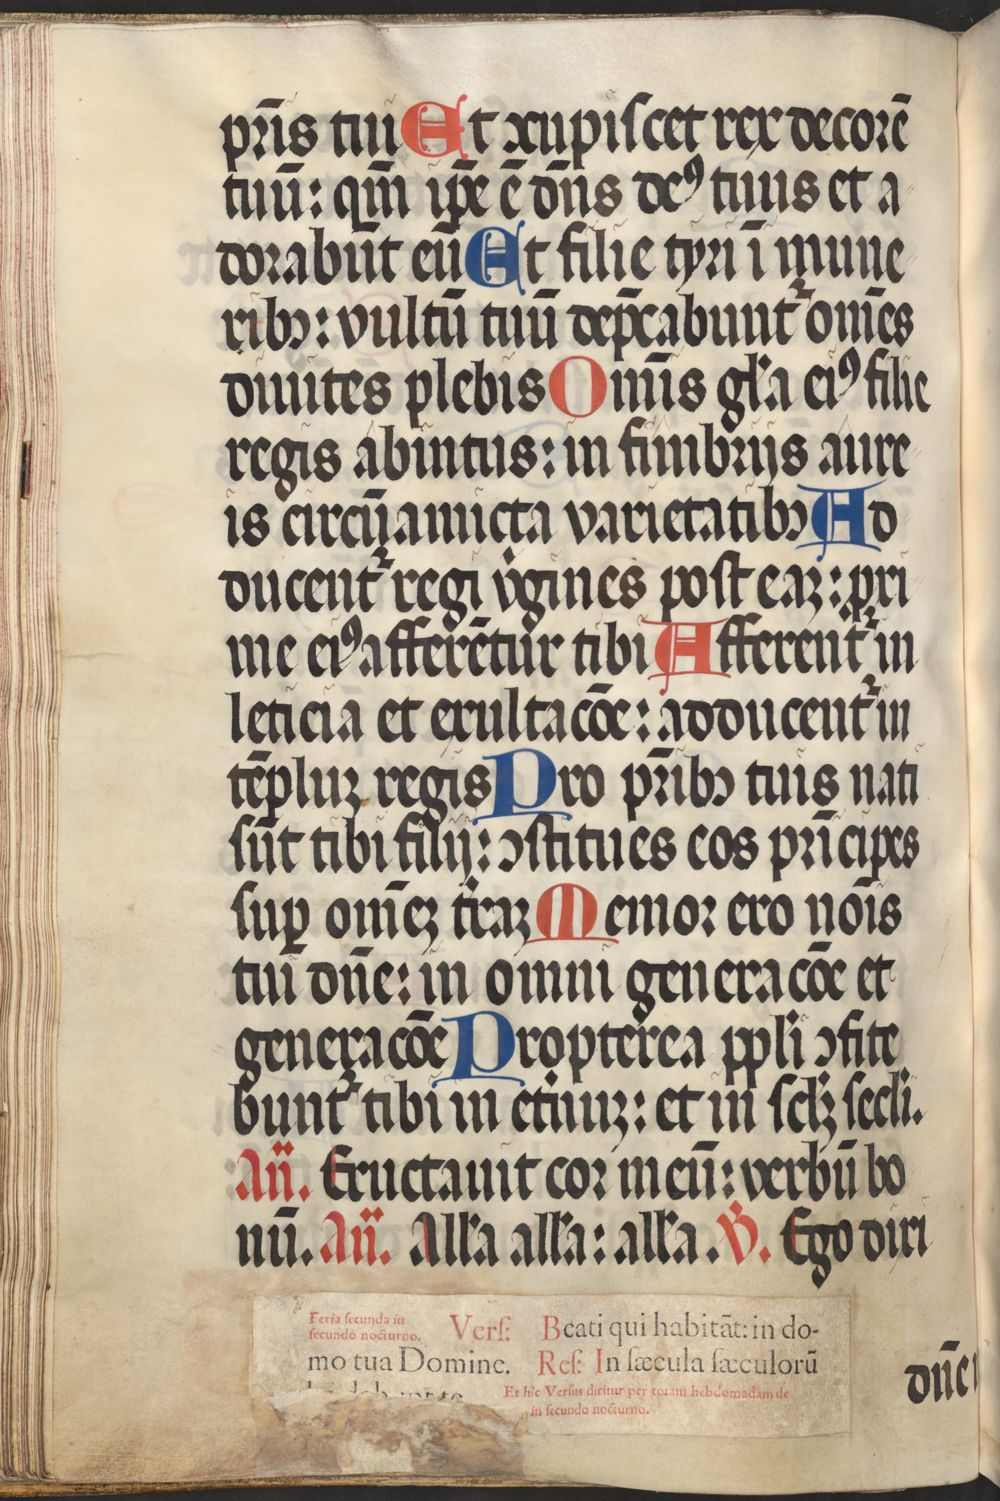 pr̄is tui Et ɔcupiſcet rex decorē
tuū: qm̄ ip̄e ē dn̄s deꝰ tuus et a
dorabūt eū Et filie tyri ī mune
ribꝫ: vultū tuū dep̄cabuntᷣ om̄es
diuites plebis Om̄is gľa eiꝰ filie
regis abintus: in fimbrijs aure
is circūamicta varietatibꝫ Ad
ducentᷣ regi v̾gines poſt eaꝫ: pri
me eiꝰ afferētur tibi Afferentᷣ in
leticia et exultacōe: adducentᷣ in
tēpluꝫ regis Pro pr̄ibꝫ tuis nati
ſūt tibi filij: ɔſtitues eos prīcipes
ſuꝑ om̄eꝫ t̾raꝫ Memor ero nōīs
tui dn̄e: in omni generacōe et
generacōe Propterea ppl̄i ɔfite
buntᷣ tibi in et̾nuꝫ: et in ſclꝫ ſecli.
An̄. Eructauit cor meū: verbū bo
nū. An̄. Alľa alľa: alľa. V̾. Ego dixi
Feria ſecunda in
ſecundo noct̄urno. Verſ: Beati qui habitāt: in do-
mo tua Domine. Reſ: In ſæcula ſæculorū
Et hîc Verſus dicitur per totam hebdomadam de
in ſecundo nocturno.
dn̄e